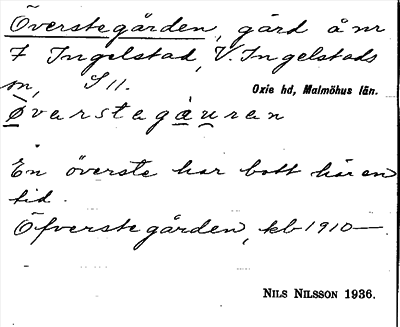 Överstegården, gård å nr
7 Ingelstad, V. Ingelstads
sn, S 11. Oxie hd, Malmöhus län.
Øvarstegąu̯ran
En överste har bott här en
tid.
Öfverstegården, kb 1910—.
Nils Nilsson 1936.